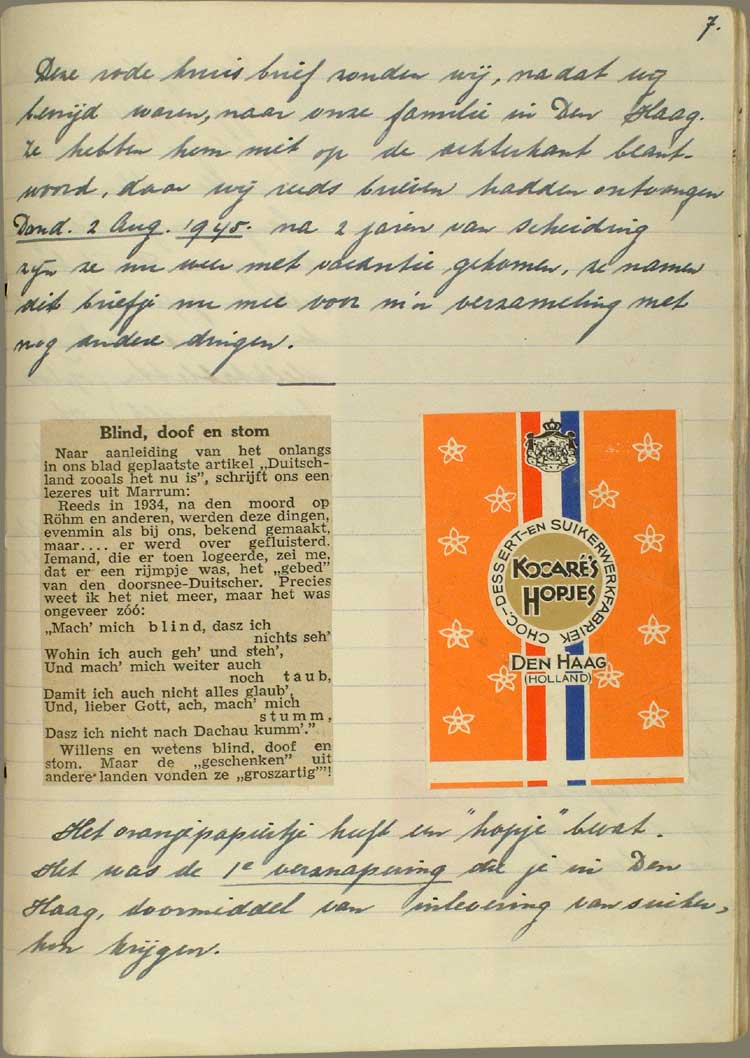 7.
Deze rode kruis brief zonden wij, nadat wij
bevrijd waren, naar onze familie in Den Haag.
Ze hebben hem niet op de achterkant beant-
woord, daar wij reeds brieven hadden ontvangen
Dond. 2 Aug. 1945. na 2 jaren van scheiding
zijn ze nu weer met vacantie gekomen, ze namen
dit briefje nu mee voor m'n verzameling met
nog andere dingen.
Blind, doof en stom
Naar aanleiding van het onlangs
in ons blad geplaatste artikel „Duitsch-
land zooals het nu is”, schrijft ons een
lezeres uit Marrum:
Reeds in 1934, na den moord op
Röhm en anderen, werden deze dingen,
evenmin als bij ons, bekend gemaakt,
maar.... er werd over gefluisterd.
Iemand, die er toen logeerde, zei me,
dat er een rijmpje was, het „gebed”
van den doorsnee-Duitscher. Precies
weet ik het niet meer, maar het was
ongeveer zóó:
„Mach' mich blind, dasz ich
nichts seh'
Wohin ich auch geh' und steh',
Und mach' mich weiter auch
noch taub,
Damit ich auch nicht alles glaub',
Und, lieber Gott, ach, mach' mich
stumm,
Dasz ich nicht nach Dachau kumm'.”
Willens en wetens blind, doof en
stom. Maar de „geschenken” uit
andere landen vonden ze „groszartig”'!
CHOC.-DESSERT-EN SUIKERWERKFABRIEK
KOZARÉ'S
HOPJES
DEN HAAG
(HOLLAND)
Het oranjepapiertje heeft een "hopje" bevat.
Het was de 1e versnapering die je in Den
Haag, doormiddel van inlevering van suiker,
kon krijgen.